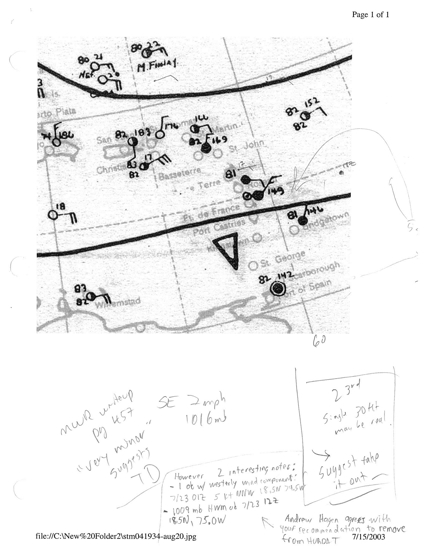 Page 1 of 1
80 22
M. Finlay
80 21
Puerto Plata
74 186
San
82 183
176
166
Martin
82 149
St. John
82 152
82
Christi
83 17
82
Basseterre
Terre
81
149
18
Ft. de France
Port Castries
81 146
Bridgetown
St. George
82 142
Scarborough
Port of Spain
83
82
Willemstad
60
MWR writeup
pg 457
"very minor"
suggests
TD
SE 2 mph
1016 mb
23rd
Single 30 kt
may be real
→ Suggest take
it out
However 2 interesting notes:
- 1 ob w/ westerly wind component:
7/23 01Z 5 kt NNW 18.5N 75.0W
- 1009 mb HWM ob 7/23 12Z
18.5N, 75.0W
Andrew Hagen agrees with
your recommendation to remove
from HURDAT
file://C:\New%20Folder2\stm041934-aug20.jpg
7/15/2003